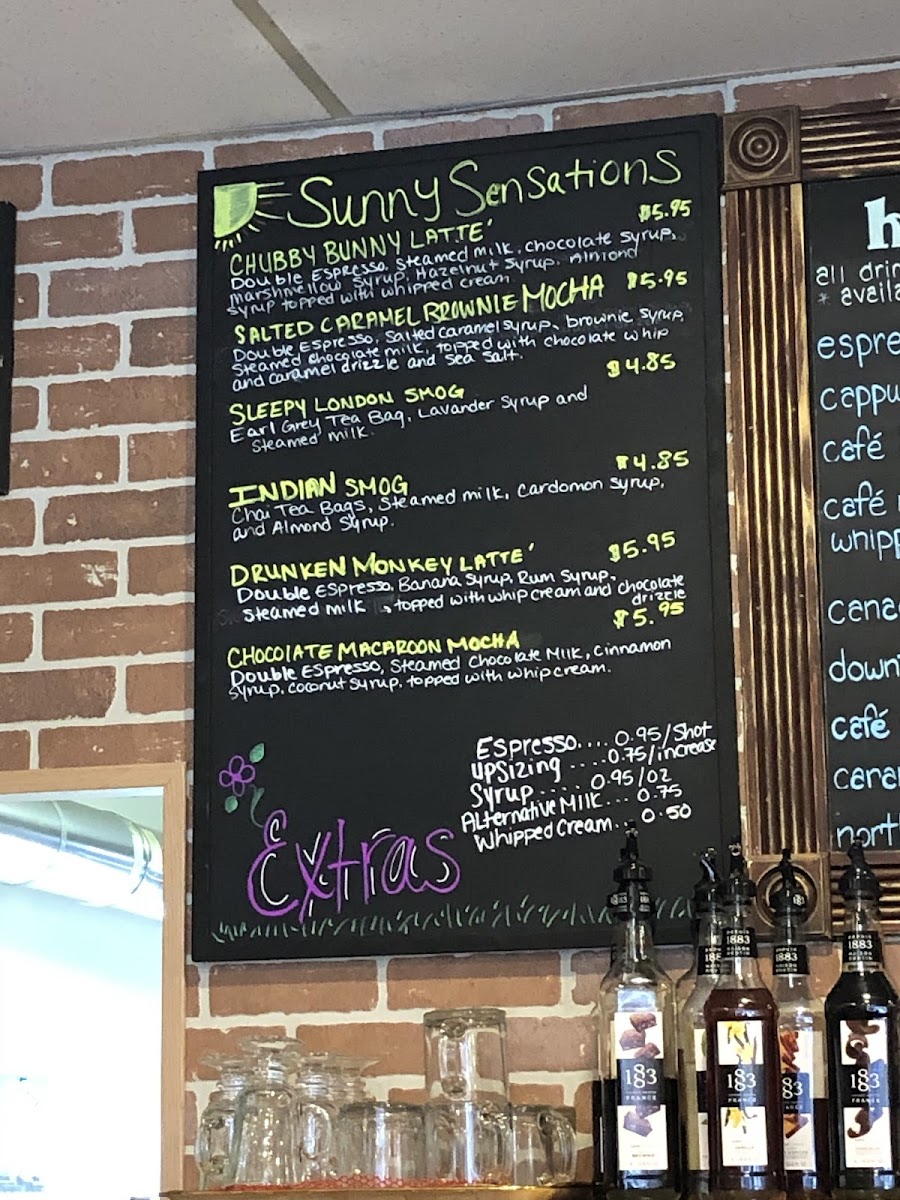 Sunny Sensations
CHUBBY BUNNY LATTE' $5.95
Double Espresso, Steamed milk, chocolate syrup,
marshmellow syrup, Hazelnut syrup. Almond
syrup topped with whipped cream.
SALTED CARAMEL BROWNIE MOCHA $5.95
Double Espresso, Salted caramel syrup, brownie syrup,
Steamed chocolate milk, topped with chocolate whip
and caramel drizzle and sea salt.
SLEEPY LONDON SMOG $4.85
Earl Grey Tea Bag, Lavander Syrup and
Steamed milk.
INDIAN SMOG $4.85
Chai Tea Bags, Steamed milk, Cardomon syrup,
and Almond Syrup.
DRUNKEN MONKEY LATTE' $5.95
Double Espresso, Banana Syrup, Rum Syrup,
steamed milk, topped with whip cream and chocolate
drizzle
CHOCOLATE MACAROON MOCHA $5.95
Double Espresso, Steamed Chocolate Milk, Cinnamon
syrup, coconut syrup, topped with whip cream.
Espresso.... 0.95/Shot
Upsizing ....0.75/increase
Syrup..... 0.95/oz
Alternative Milk... 0.75
Whipped Cream... 0.50
Extras
all
espre
cappu
café
café
whipp
cana
down
café
cara
north
1883
1883
1883
1883
FRANCE
1883
FRANCE
1883
FRANCE